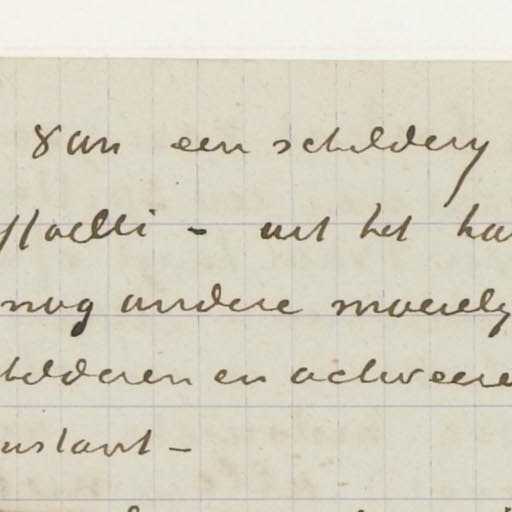 van een schildery
ffaelli - uit het ha
nog andere moeiely
hilderen en actueele
uslaut -